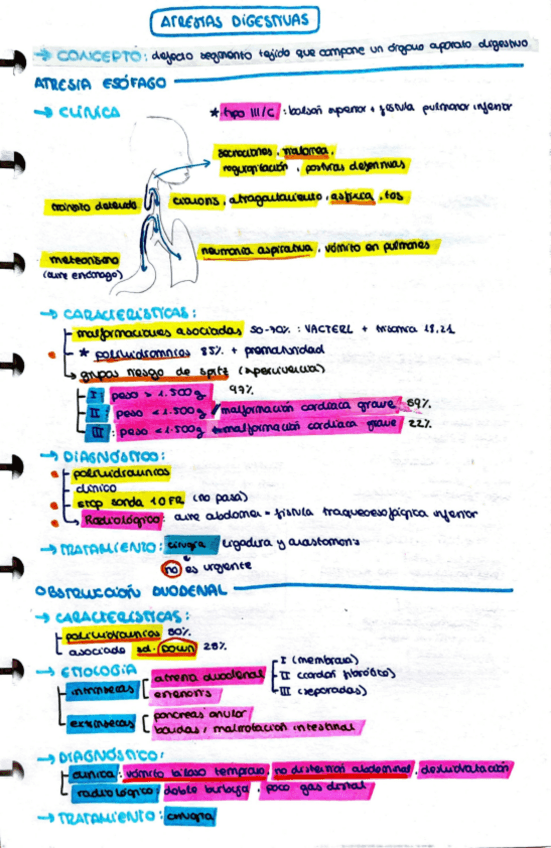 ATRESIAS DIGESTIVAS
→ CONCEPTO: defecto segmento tejido que compone un órgano aparato digestivo
ATRESIA ESÓFAGO
→ CLÍNICA
* tipo III/C: bolsón superior + fístula pulmonar inferior
secreciones, sialorrea,
regurgitación, posturas defensivas
tránsito detenido
cianosis, atragantamiento, asfixia, tos
meteorismo
(aire esófago)
neumonía aspirativa, vómito en pulmones
→ CARACTERÍSTICAS:
malformaciones asociadas 50-70%: VACTERL + trisomía 18,21
* polihidramnios 85% + prematuridad
grupos riesgo de spitz (supervivencia)
I: peso > 1.500g 97%
II: peso < 1.500g / malformación cardíaca grave 59%
III: peso < 1.500g + malformación cardíaca grave 22%
→ DIAGNÓSTICO:
polihidramnios
clínico
stop sonda 10 FR (no pasa)
Radiológico: aire abdomen = fístula traqueoesofágica inferior
→ TRATAMIENTO: cirugía ligadura y anastomosis
no es urgente
OBSTRUCCIÓN DUODENAL
→ CARACTERÍSTICAS:
polihidramnios 80%
asociado sd. DOWN 28%
→ ETIOLOGÍA
intrínsecas
atresia duodenal
I (membrana)
II (cordón fibrótico)
III (separadas)
estenosis
extrínsecas
páncreas anular
bandas / malrotación intestinal
→ DIAGNÓSTICO:
clínica: vómito bilioso temprano, no distensión abdominal, deshidratación
radiológico: doble burbuja, poco gas distal
→ TRATAMIENTO: cirugía